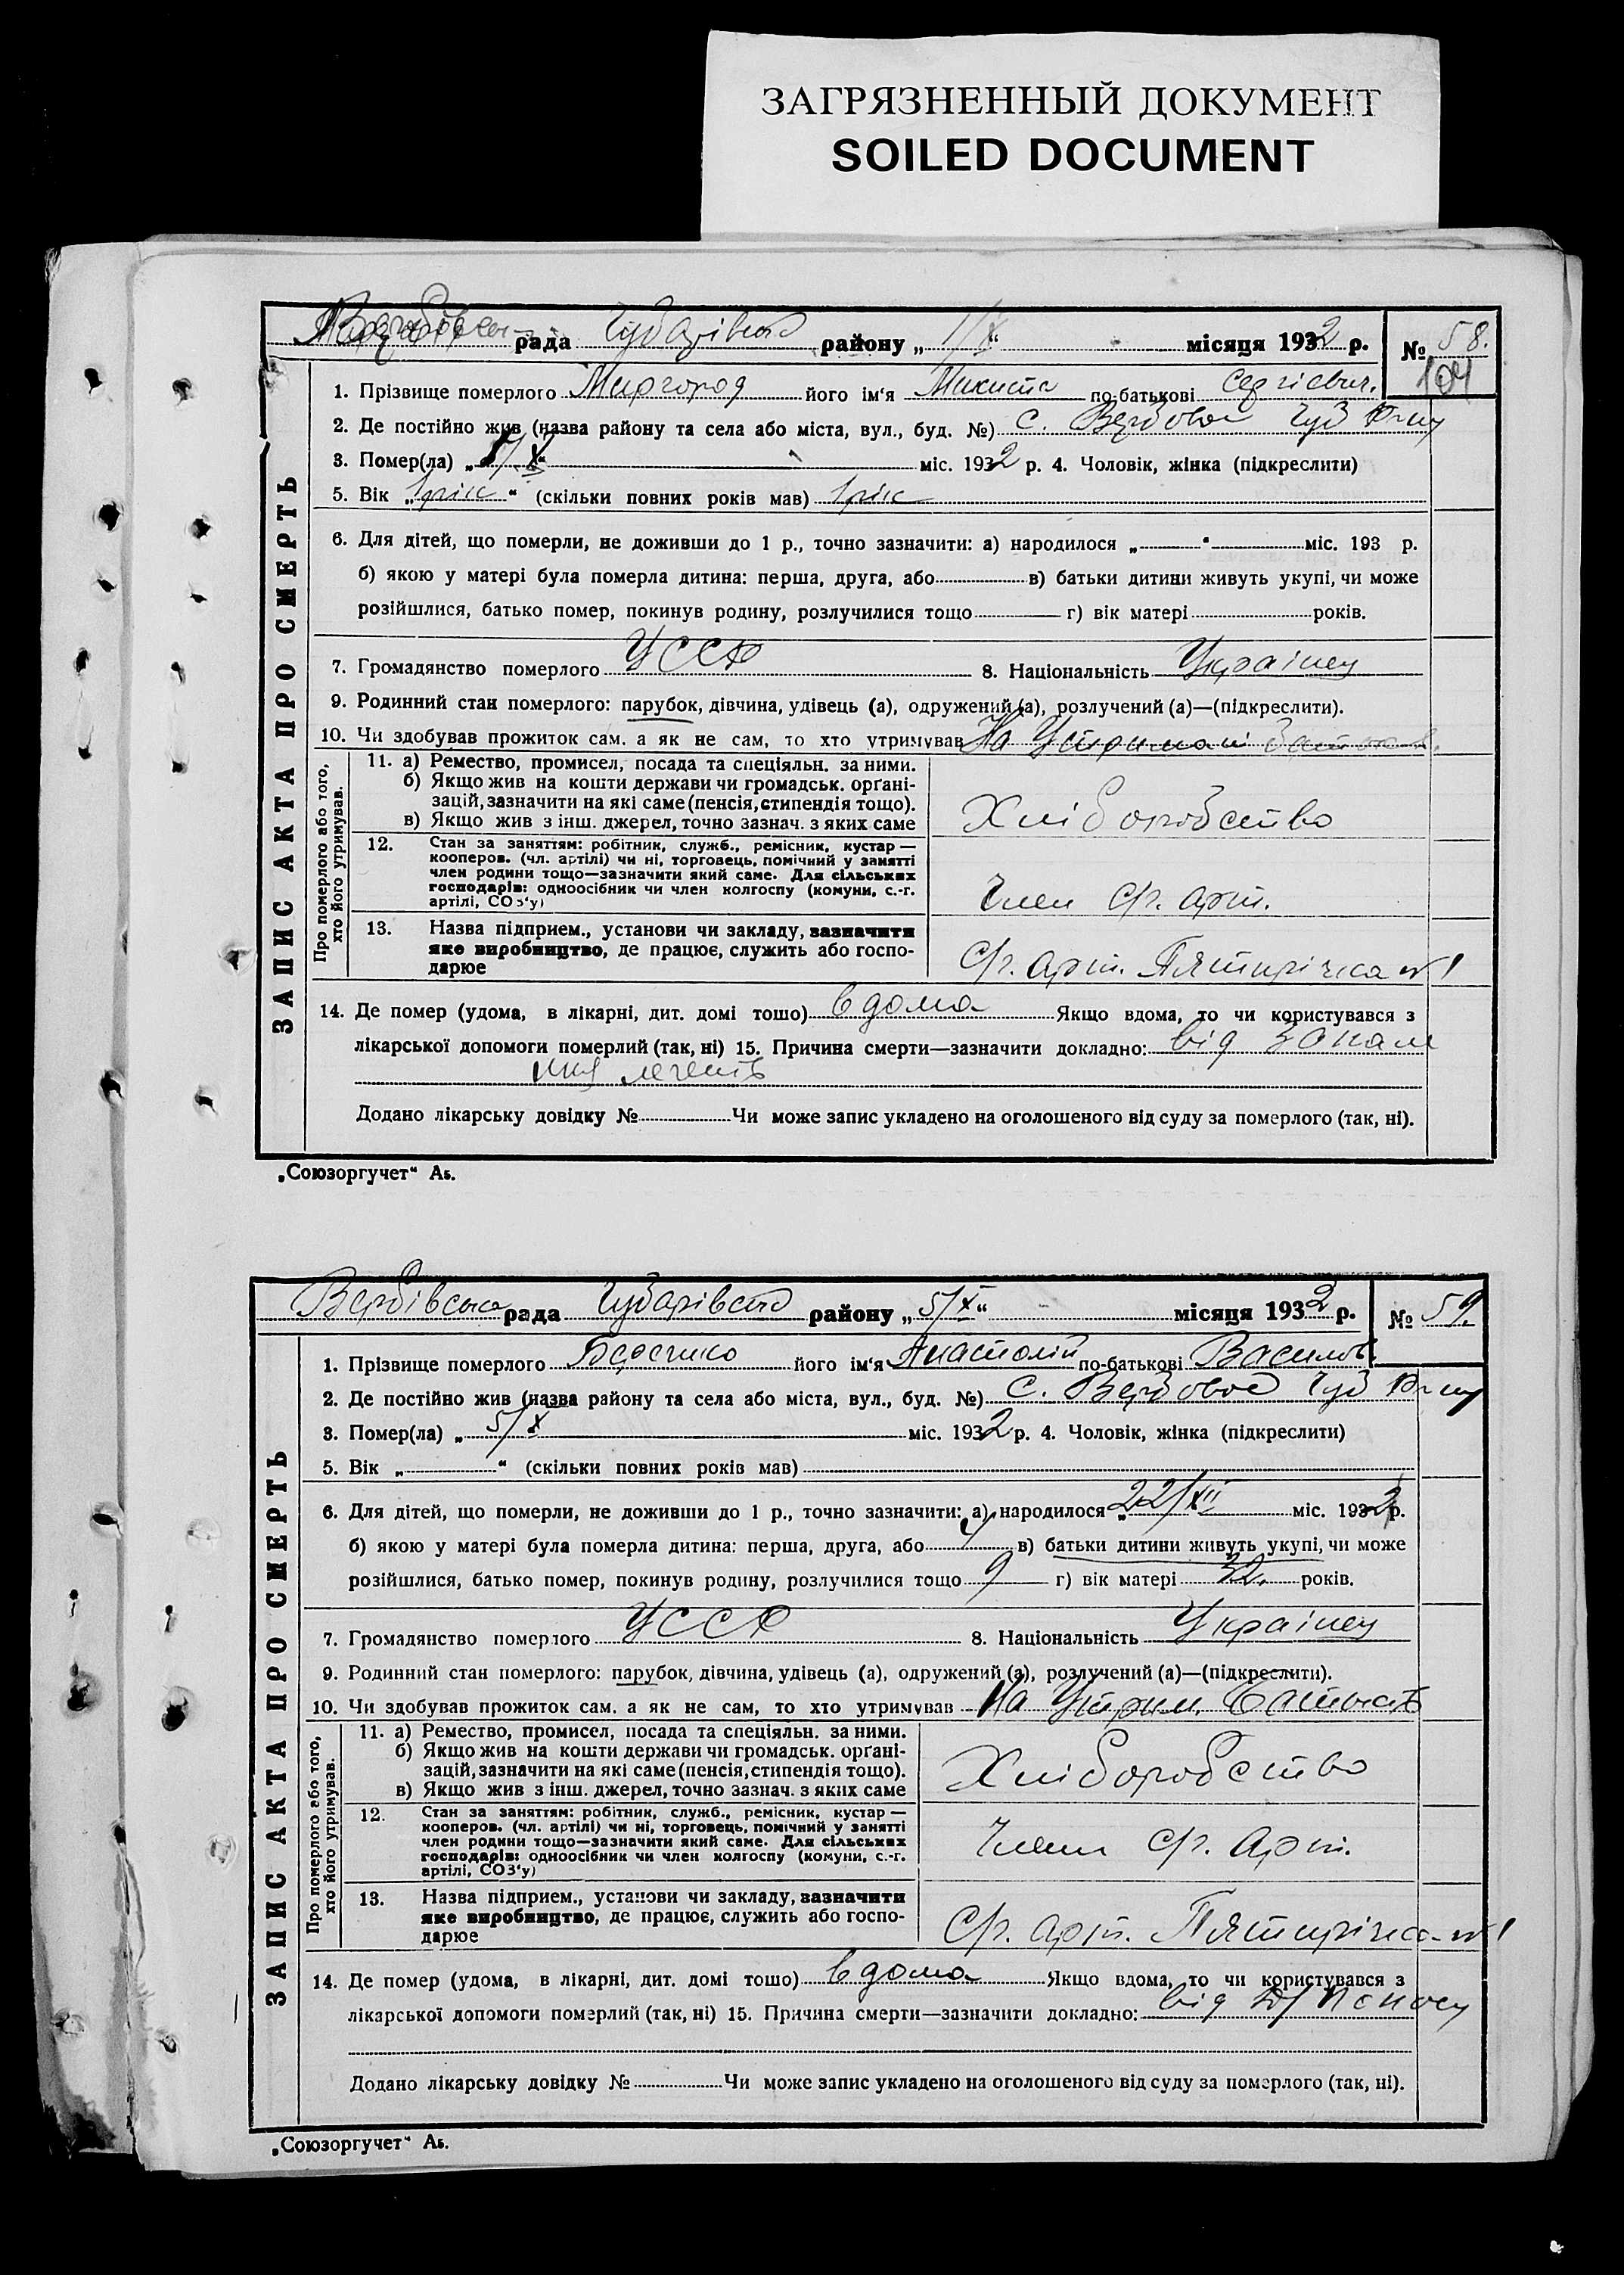 ЗАГРЯЗНЕННЫЙ ДОКУМЕНТ
SOILED DOCUMENT
рада Чубарівського району „1/X“ місяця 1932 р. № 58.
104
1. Прізвище померлого Миргород його ім'я Микита по-батькові Сергієвич.
2. Де постійно жив (назва району та села або міста, вул., буд. №) с. Вербове Чуб
3. Помер(ла) „1/X“ міс. 1932 р. 4. Чоловік, жінка (підкреслити)
5. Вік „1 рік“ (скільки повних років мав) 1 рік
6. Для дітей, що померли, не доживши до 1 р., точно зазначити: а) народилося „ “ міс. 193 р.
б) якою у матері була померла дитина: перша, друга, або в) батьки дитини живуть укупі, чи може
розійшлися, батько помер, покинув родину, розлучилися тощо г) вік матері років.
7. Громадянство померлого УССР 8. Національність Українец
9. Родинний стан померлого: парубок, дівчина, удівець (а), одружений (а), розлучений (а)—(підкреслити).
10. Чи здобував прожиток сам, а як не сам, то хто утримував На Утримані батьков.
ЗАПИС АКТА ПРО СМЕРТЬ
Про померлого або того, хто його утримував.
11. а) Ремество, промисел, посада та спеціяльн. за ними.
б) Якщо жив на кошти держави чи громадськ. орґані-
зацій, зазначити на які саме (пенсія, стипендія тощо).
в) Якщо жив з інш. джерел, точно зазнач. з яких саме
Хліборобство
12. Стан за заняттям: робітник, служб., ремісник, кустар —
кооперов. (чл. артілі) чи ні, торговець, помічний у занятті
член родини тощо—зазначити який саме. Для сільських
господарів: одноосібник чи член колгоспу (комуни, с.-г.
артілі, СОЗ'у)
Член С/г. арт.
13. Назва підприєм., установи чи закладу, зазначити
яке виробництво, де працює, служить або госпо-
дарює
С/г. арт. Пятирічка №1
14. Де помер (удома, в лікарні, дит. домі тощо) вдома Якщо вдома, то чи користувався з
лікарської допомоги померлий (так, ні) 15. Причина смерти—зазначити докладно: від запале
ння легень
Додано лікарську довідку № Чи може запис укладено на оголошеного від суду за померлого (так, ні).
„Союзоргучет“ А5.
Вербівська рада Чубарівського району „5/X“ місяця 1932 р. № 59.
1. Прізвище померлого його ім'я Анатолій по-батькові Василов.
2. Де постійно жив (назва району та села або міста, вул., буд. №) с. Вербове Чуб
3. Помер(ла) „5/X“ міс. 1932 р. 4. Чоловік, жінка (підкреслити)
5. Вік „ “ (скільки повних років мав)
6. Для дітей, що померли, не доживши до 1 р., точно зазначити: а) народилося „22/XII міс. 193 р.
б) якою у матері була померла дитина: перша, друга, або в) батьки дитини живуть укупі, чи може
розійшлися, батько помер, покинув родину, розлучилися тощо г) вік матері 32. років.
7. Громадянство померлого УССР 8. Національність Українец
9. Родинний стан померлого: парубок, дівчина, удівець (а), одружений (а), розлучений (а)—(підкреслити).
10. Чи здобував прожиток сам, а як не сам, то хто утримував На Утрим. батьків
ЗАПИС АКТА ПРО СМЕРТЬ
Про померлого або того, хто його утримував.
11. а) Ремество, промисел, посада та спеціяльн. за ними.
б) Якщо жив на кошти держави чи громадськ. орґані-
зацій, зазначити на які саме (пенсія, стипендія тощо).
в) Якщо жив з інш. джерел, точно зазнач. з яких саме
Хліборобство
12. Стан за заняттям: робітник, служб., ремісник, кустар —
кооперов. (чл. артілі) чи ні, торговець, помічний у занятті
член родини тощо—зазначити який саме. Для сільських
господарів: одноосібник чи член колгоспу (комуни, с.-г.
артілі, СОЗ'у)
Член С/г. Арт.
13. Назва підприєм., установи чи закладу, зазначити
яке виробництво, де працює, служить або госпо-
дарює
С/г. арт. Пятирічка №1
14. Де помер (удома, в лікарні, дит. домі тощо) вдома Якщо вдома, то чи користувався з
лікарської допомоги померлий (так, ні) 15. Причина смерти—зазначити докладно: від поносу
Додано лікарську довідку № Чи може запис укладено на оголошеного від суду за померлого (так, ні).
„Союзоргучет“ А5.